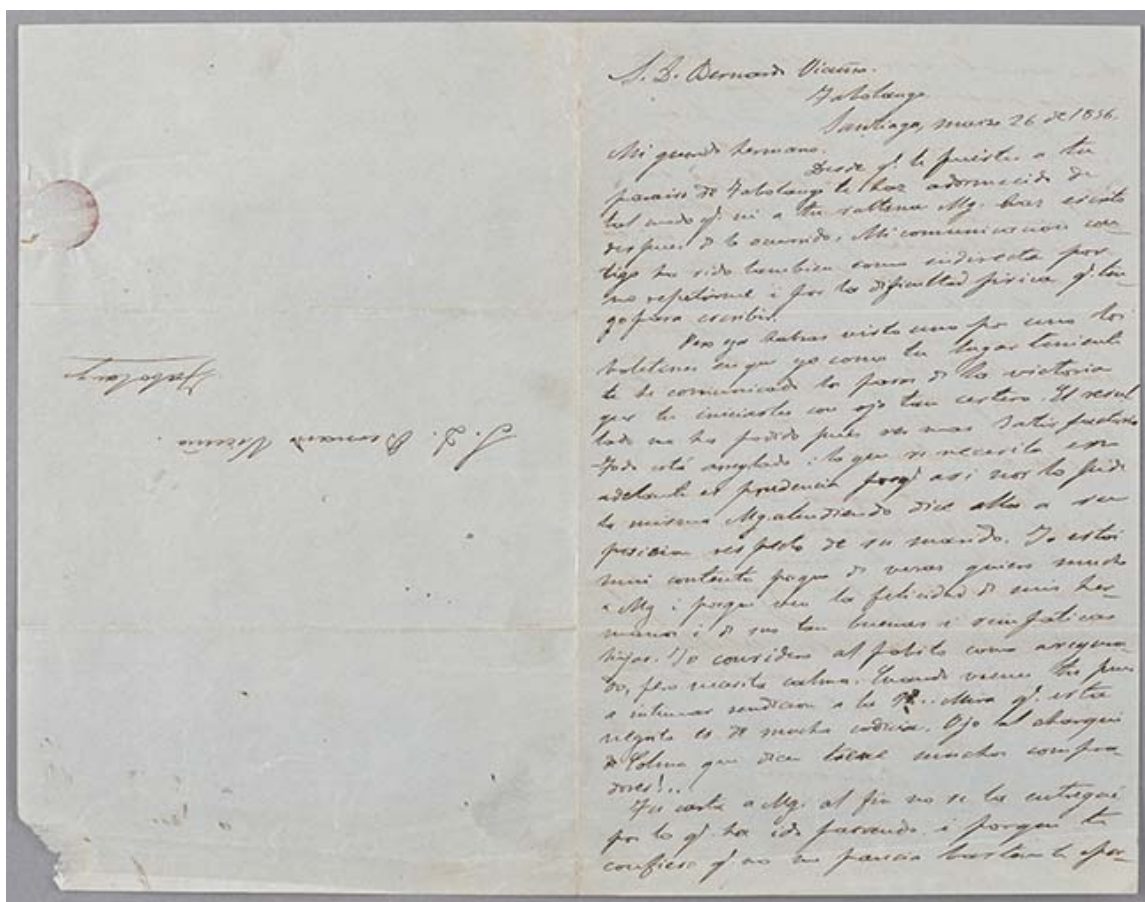 S. D. Bernardo Vicuña.
Tabolango
Santiago, marzo 26 de 1856.
Mi querido hermano.
Desde qe. te fuistes a tu
paraiso de Tabolango te has adormecido de
tal modo qe. ni a tu Mg. has escrito
despues de lo ocurrido. Mi comunicacion con-
tigo ha sido tambien como indirecta por
no repetirme i por la dificultad fisica qe. ten-
go para escribir.
Pero ya habras visto uno por uno los
boletines en que yo como tu lugar tenient
te he comunicado los pasos de la victoria
que tu iniciastes con ojo tan certero. El resul
tado no ha podido pues ser mas satisfactorio
Todo está arreglado i lo que se necesita en
adelante es prudencia porqe. asi nos lo pide
la misma Mg. atendiendo dice ella a su
posicion respecto de su marido. Yo estoi
mui contento porque de veras quiero mucho
a Mg. i porque veo la felicidad de mis her-
manos i de sus tan buenas i simpaticas
hijas. Yo considero al pobre como
do, pero necesita calma. Cuando vienes tu pues
a intimar rendicion a la Mira qe. esta
es de mucha codicia. Ojo al charqui
de Colina que dicen tiene muchos compra-
dores!..
Tu carta a Mg. al fin no se la entregué
por lo qe. ha ido pasando i porque te
confieso qe. no me parecia bastante opor-
S. D. Bernardo Vicuña.
Tabolango